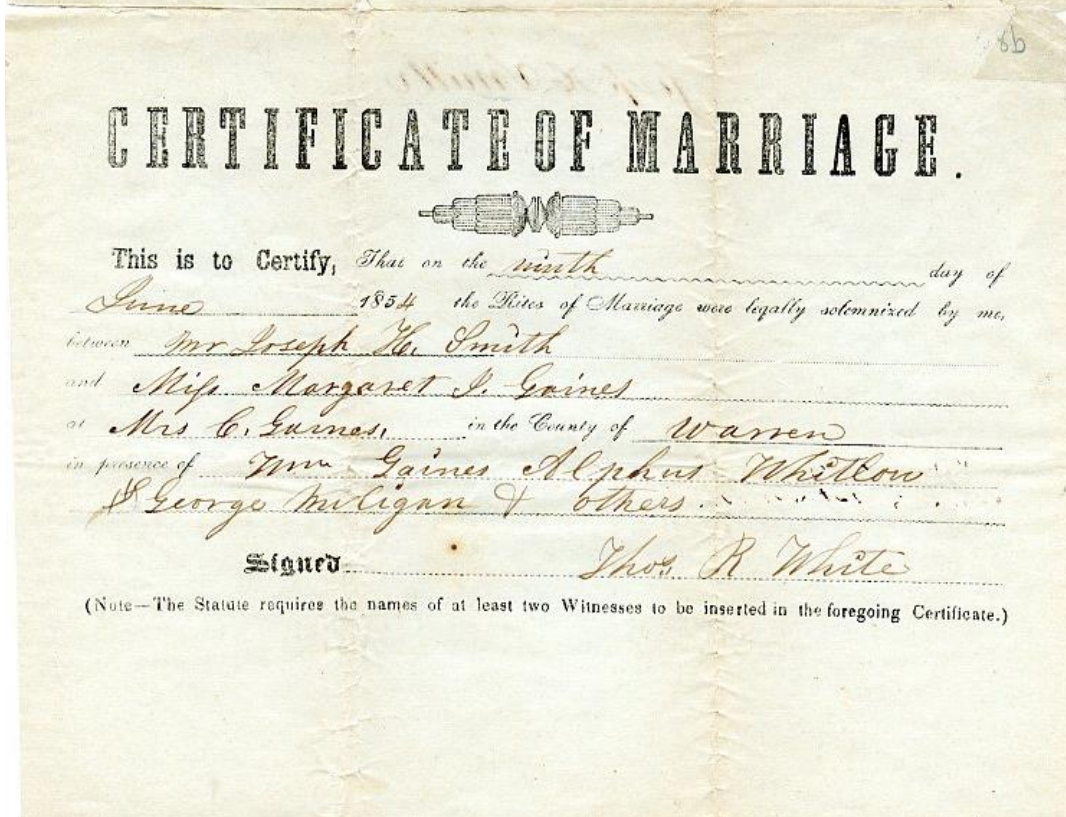 86
CERTIFICATE OF MARRIAGE.
This is to Certify, That on the ninth day of
June 1854 the Rites of Marriage were legally solemnized by me,
between Mr Joseph H. Smith
and Miss Margaret J. Gaines
at Mrs C. Gaines, in the County of Warren
in presence of Wm Gaines Alphus Whitlow
& George Miligan & others.
Signed Thos R White
(Note—The Statute requires the names of at least two Witnesses to be inserted in the foregoing Certificate.)